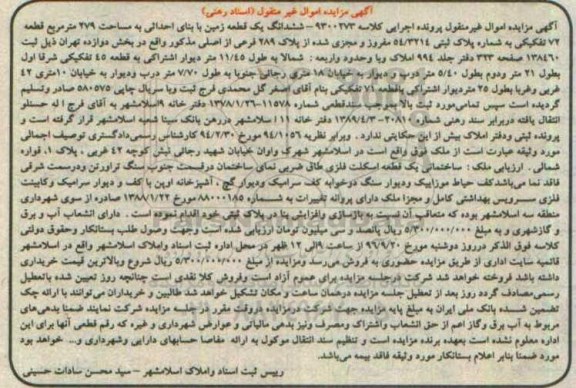 آگهی مزایده اموال غیر منقول (اسناد رهنی)
آگهی مزایده اموال غیرمنقول پرونده اجرایی کلاسه ۹۳۰۰۲۷۳ – ششدانگ یک قطعه زمین با بنای احداثی به مساحت ۲۷۹ مترمربع قطعه
۷۲ تفکیکی به شماره پلاک ثبتی ۵۴/۳۲۱۴ مفروز و مجزی شده از پلاک ۲۸۹ فرعی از اصلی مذکور واقع در بخش دوازده تهران ذیل ثبت
۱۳۸۴۶۰ صفحه ۳۲۳ دفتر جلد ۹۹۴ املاک وبا حدود واربعه : شمالا به طول ۱۱/۴۵ متر دیوار اشتراکی به قطعه ۴۵ تفکیکی شرقا اول
بطول ۲۱ متر ودوم بطول ۵/۴۰ متر درب و دیوار به خیابان ۱۸ متری رجائی جنوبا به طول ۷/۷۰ متر درب ودیوار به خیابان ۱۰متری ۴۲
غربی وغربا بطول ۲۵ متردیوار اشتراکی باقطعه ۷۱ تفکیکی بنام آقای اصغر گل محمدی فرج ثبت وبا سریال چاپی ۵۸۰۵۷۵ صادر وتسلیم
گردیده است سپس تمامی‌مورد ثبت بالا بموجب سندقطعی شماره ۱۱۵۷۸–۱۳۷۸/۱/۲۶ دفتر خانه ۹اسلامشهر به آقای فرج ا له حسنلو
انتقال یافته دربرابر سند رهنی شماره ۲۰۸۱۰–۱۳۸۹/۴/۳ دفتر خانه ۱۱ اسلامشهر دررهن بانک سینا شعبه اسلامشهر قرار گرفته است و
پرونده ثبتی ودفتر املاک بیش از این حکایتی ندارد . وبرابر نظریه ۹۴/۱۰۵۶ مورخ ۹۴/۲/۳۰ کارشناس رسمی‌دادگستری توصیف اجمالی
مورد وثیقه عبارت است از ملک فوق واقع است در اسلامشهر شهرک واوان خیابان شهید رجائی نبش کوچه ۴۲ غربی . پلاک ۱. فواره
شمالی . ارزیابی ملک : ساختمانی یک قطعه اسکلت فلزی طاق ضربی نمای ساختمان درقسمت جنوب سنگ تراورتن ودرسمت شرقی
فاقد نما می‌باشدکف حیاط موزاییک ودیوار سنگ دوخوابه کف سرامیک ودیوار گچ . آشپزخانه اوپن با کف و دیوار سرامیک وکابینت
فلزی سرویس بهداشتی کامل و مجزا ملک دارای پروانه تغییرات به شماره ۸۸۰۰۰۱۸۵ مورخ ۱۳۸۸/۱/۲۲ صادره از سوی شهرداری
منطقه سه اسلامشهر بوده که متعاقب آن نسبت به بازسازی وافزایش بنا در پلاک ثبتی خود اقدام نموده است . دارای انشعاب آب و برق
و گازشهری و به مبلغ ۵/۳۰۰/۰۰۰/۰۰۰ ریال پانصد و سی میلیون تومان ارزیابی شده است وجهت وصول طلب بستانکار وحقوق دولتی
کلاسه فوق الذکر درروز دوشنبه مورخ ۹۶/۹/۲۰ از ساعت ۹الی ۱۲ ظهر در محل اداره ثبت اسناد واملاک اسلامشهر واقع در اسلامشهر
قائمیه سایت اداری از طریق مزایده حضوری به فروش می‌رسد ومزایده از مبلغ ۵/۳۰۰/۰۰۰/۰۰۰ ریال شروع وبالاترین قیمت خریداری
داشته باشد فروخته خواهد شد شرکت درجلسه مزایده برای عموم آزاد است وفروش کلا نقدی است چنانچه روز تعیین شده باتعطیل
رسمی‌مصادف گردد روز بعد از تعطیل جلسه مزایده درهمان ساعت و مکان تشکیل خواهد شد طالبین و خریداران می‌توانند با ارائه چک
تضمین شده بانک ملی ایران به مبلغ پایه مزایده جهت شرکت درمزایده دروقت مقرر در جلسه مزایده شرکت نمایند ضمنا بدهی‌های
مربوط به آب برق وگاز اعم از حق انشعاب واشتراک ومصرف ونیز بدهی مالیاتی و عوارض شهرداری و غیره که رقم قطعی آنها برای این
اداره معلوم نشده است بعهده برنده مزایده است و تنظیم سند انتقال موکول به ارائه مفاصا حسابهای دارایی وشهرداری و... خواهد بود
مورد ضمنا بنابر اعلام بستانکار مورد وثیقه فاقد بیمه می‌باشد.
رییس ثبت اسناد واملاک اسلامشهر – سید محسن سادات حسینی